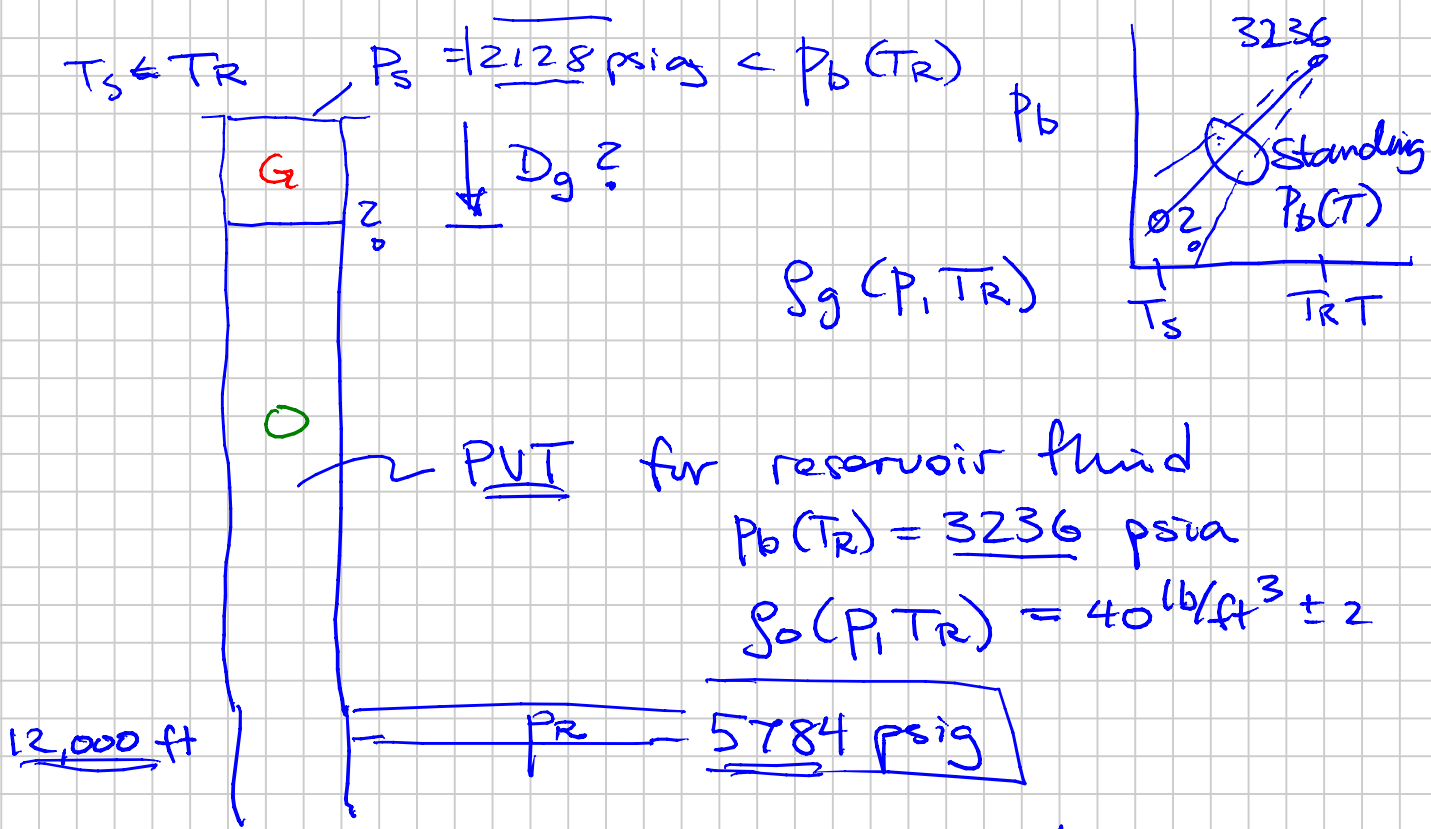 T_s ≤ T_R P_s = 2128 psig < P_b (T_R)
3236
P_b
G
D_g ?
Standing
P_b(T)
?
?
ρ_g (P, T_R)
T_s T_R T
O
PVT for reservoir fluid
P_b(T_R) = 3236 psia
ρ_o (P, T_R) = 40 lb/ft³ ± 2
12,000 ft P_R 5784 psig